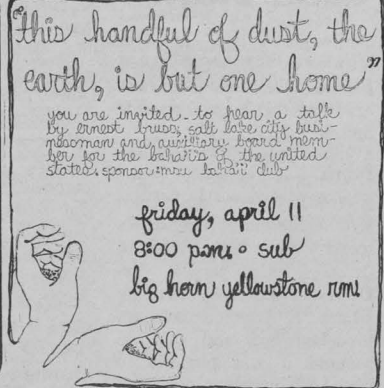 "this handful of dust, the
earth, is but one home"
you are invited to hear a talk
by ernest bruss, salt lake city busi-
nessman and auxiliary board mem-
ber for the bahá'ís of the united
states. sponsor: msu bahá'í club
friday, april 11
8:00 p.m. · sub
big horn yellowstone rm.